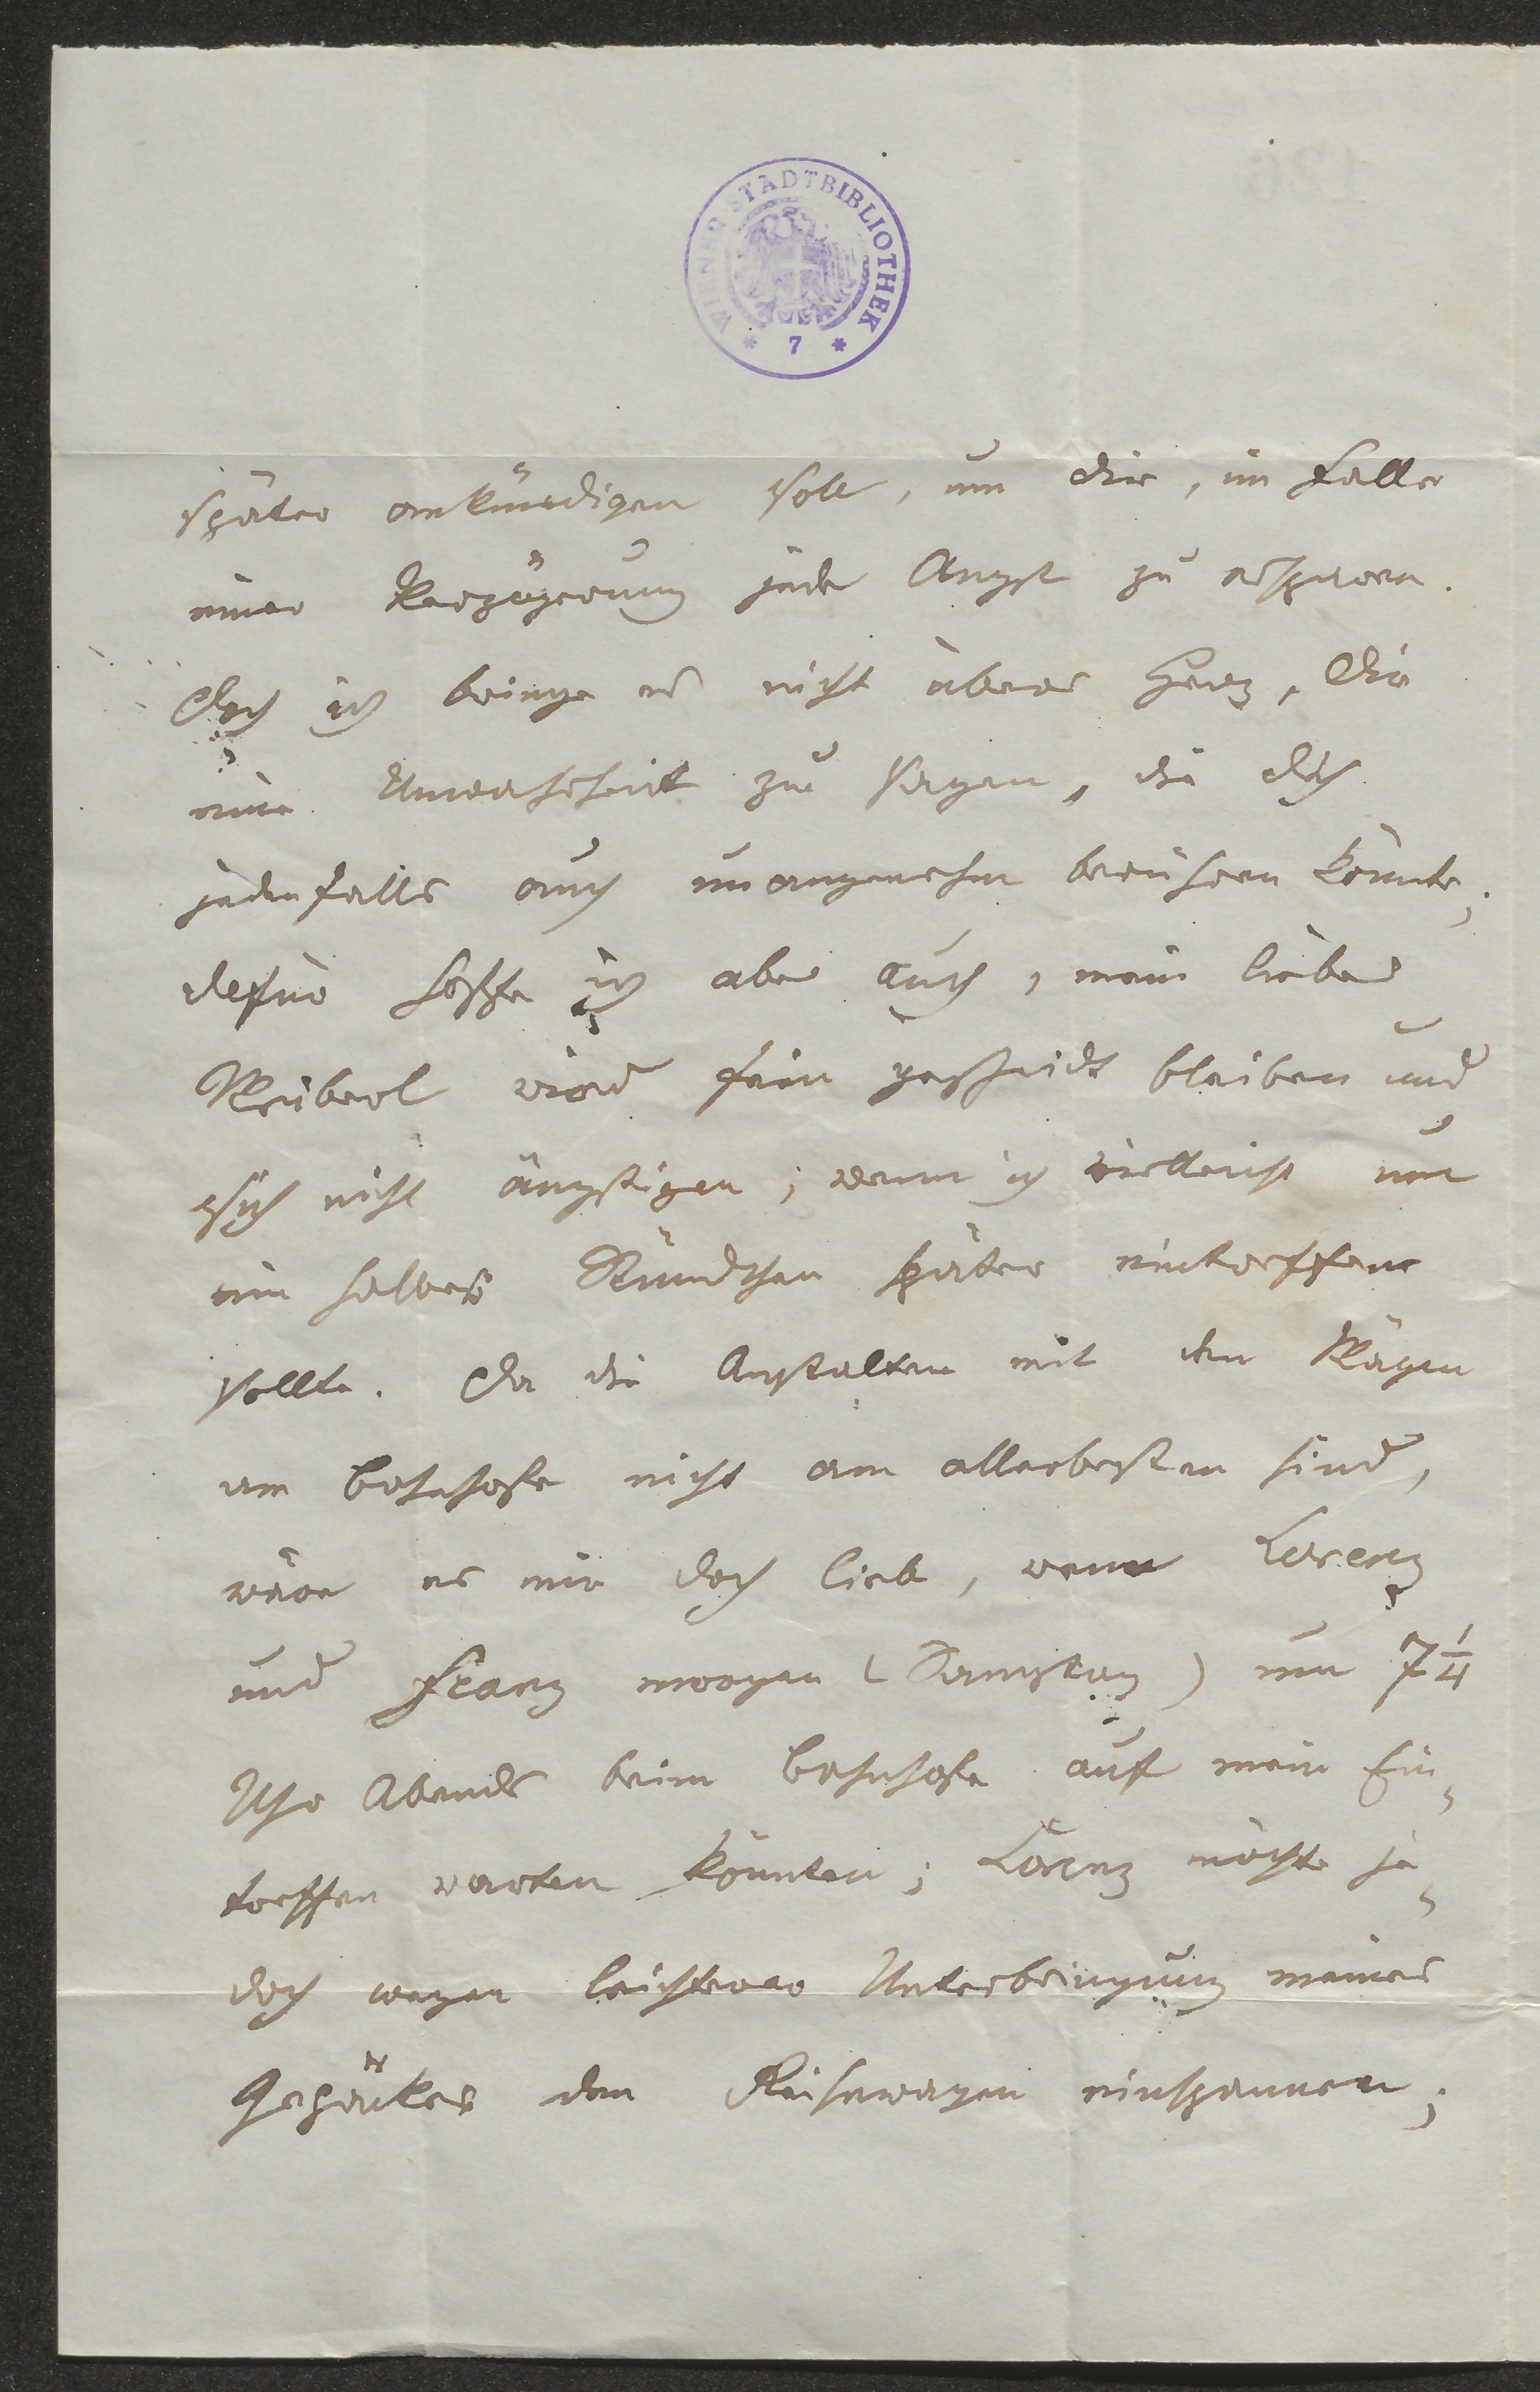 WIENER STADTBIBLIOTHEK
* 7 *
später ankündigen soll, um dir, im Falle
einer Verzögerung jede Angst zu ersparen.
Doch ich bringe es nicht übers Herz, Dir
eine Unwahrheit zu sagen, die dich
jedenfalls auch unangenehm berühren könnte;
dafür hoffe ich aber auch, mein liebes
Weiberl wird fein gescheidt bleiben und
sich nicht ängstigen; wenn ich vielleicht um
ein halbes Stündchen später eintreffen
sollte. Da die Anstalten mit den Wägen
am Bahnhofe nicht am allerbesten sind,
wäre es mir doch lieb, wenn Lorenz
und Franz morgen (Samstag) um 7 1/4
Uhr Abends beim Bahnhofe auf mein Ein-
treffen warten könnten; Lorenz möchte je-
doch wegen leichterer Unterbringung meines
Gepäckes den Reisewagen einspannen;